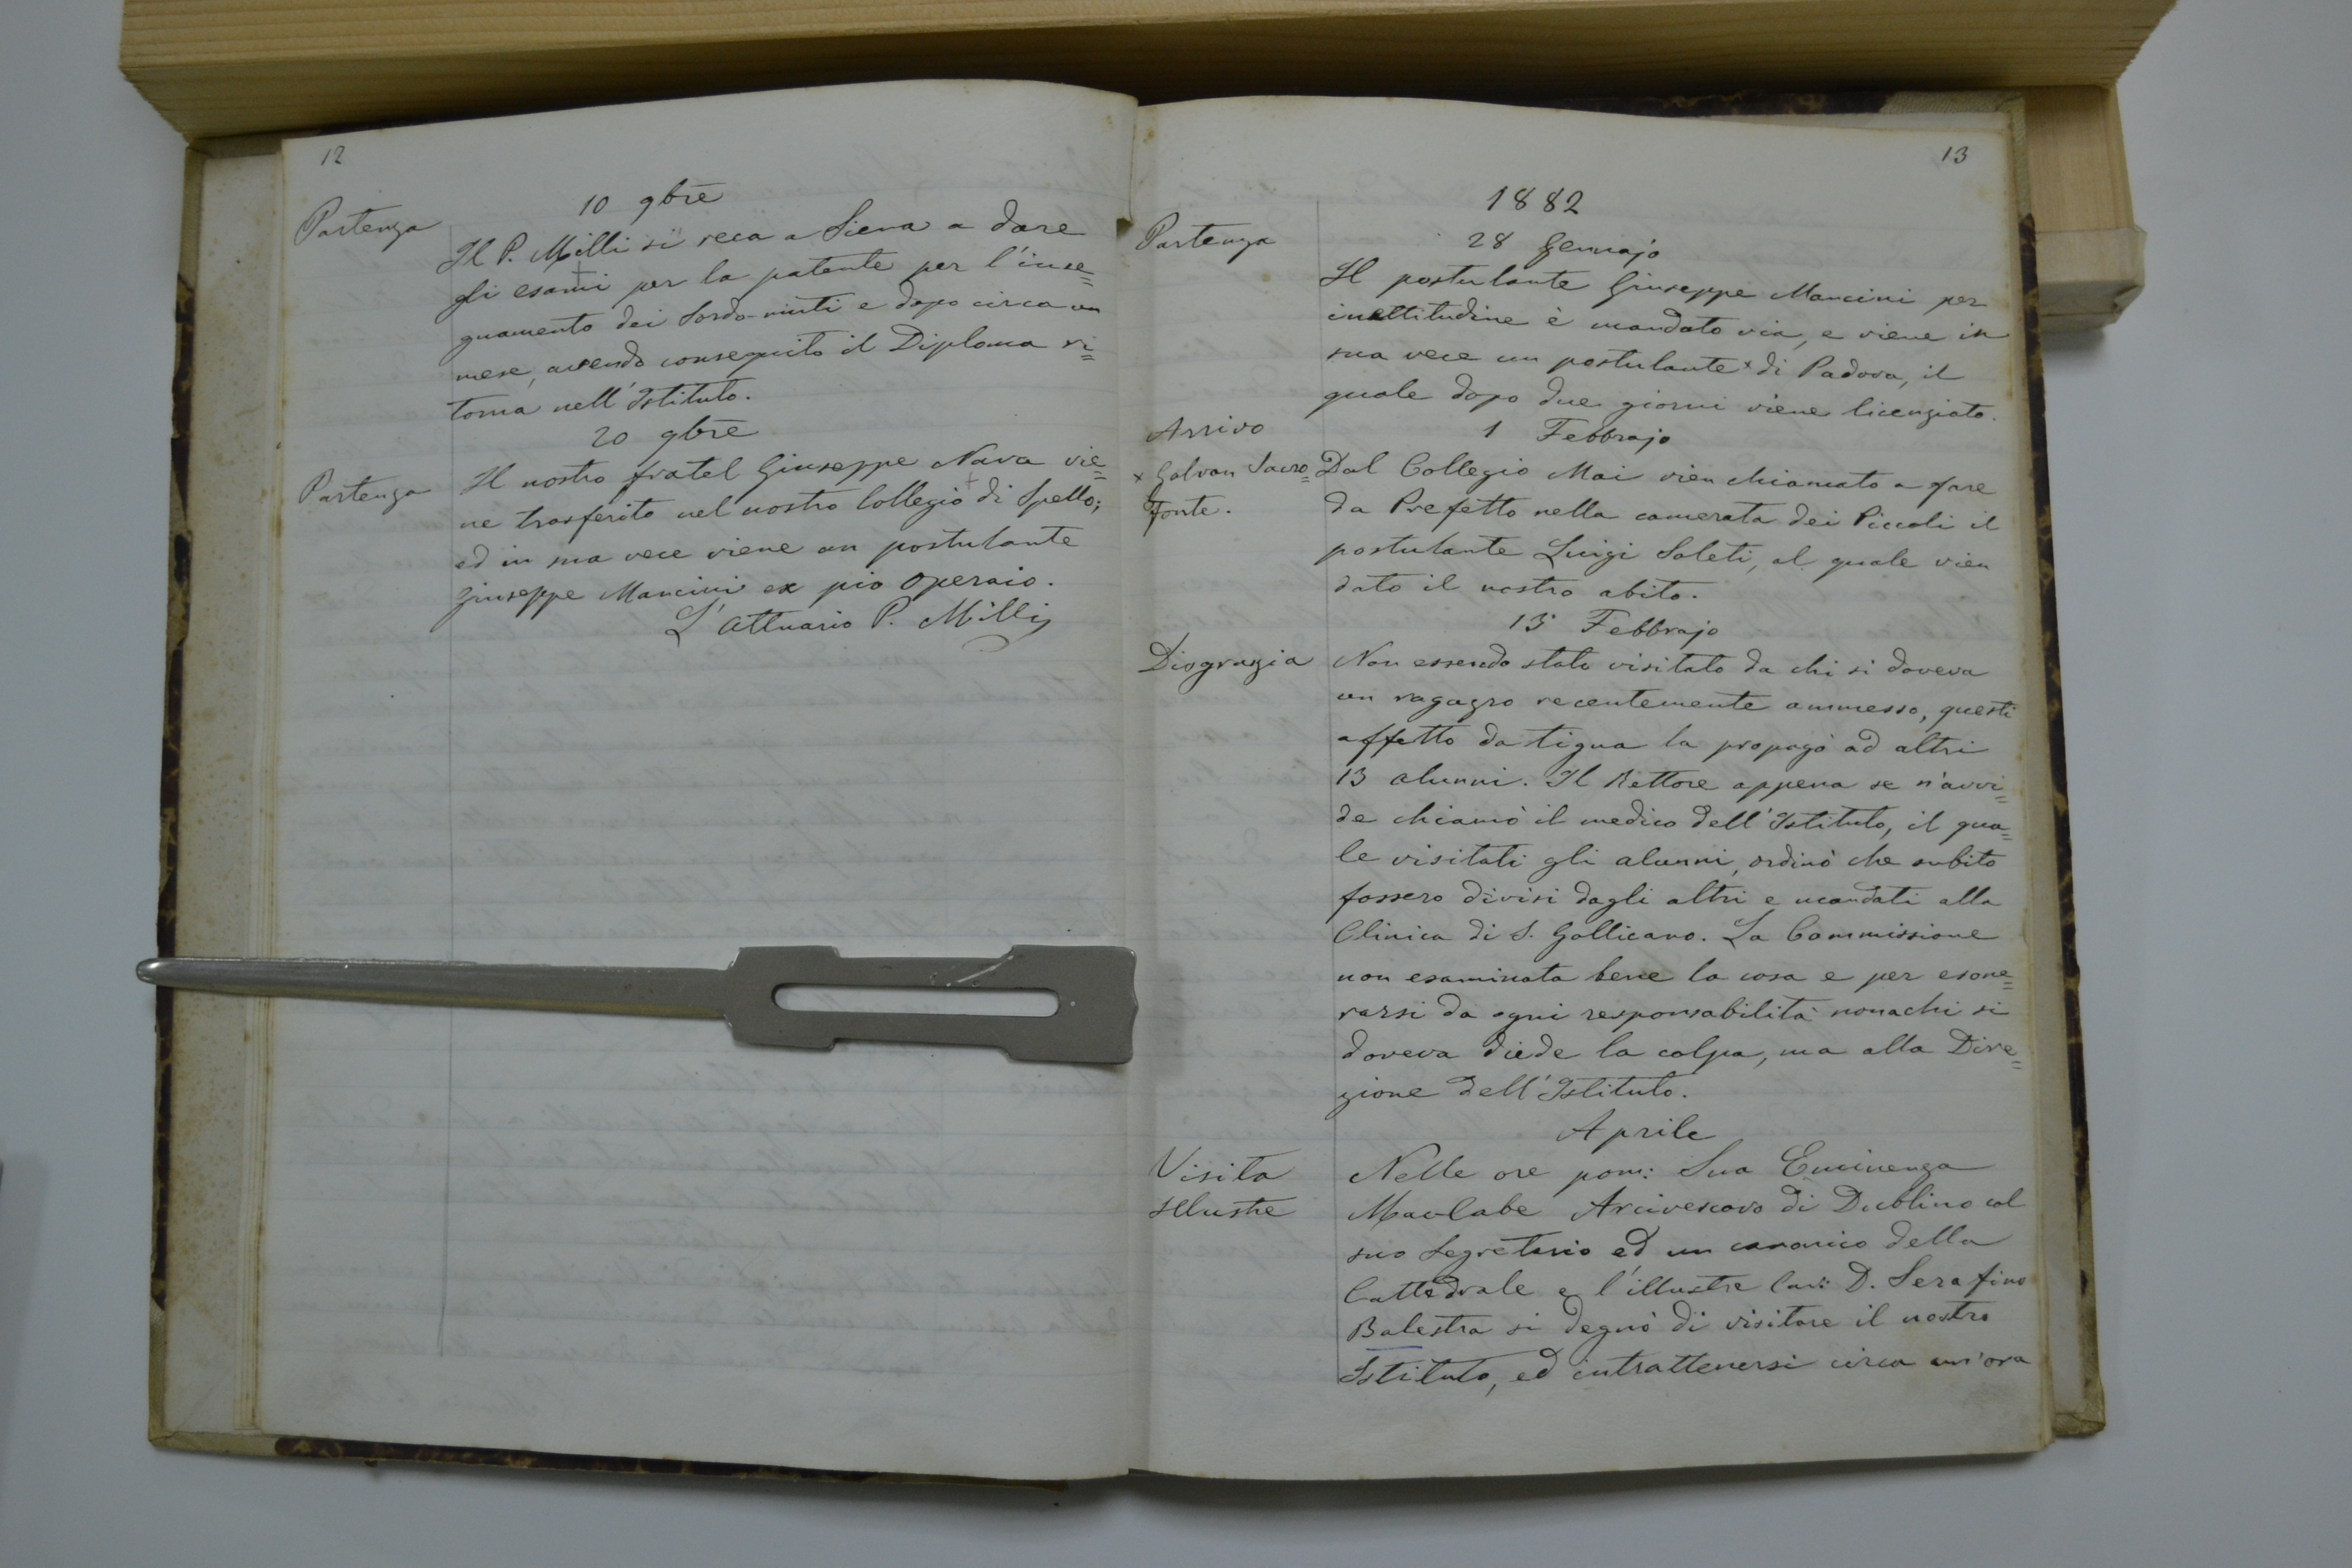 12
10 9bre
Partenza
Il P. Milli si reca a Siena a dare
gli esami per la patente per l'inse=
gnamento dei Sordo-muti e dopo circa un
mese, avendo conseguito il Diploma ri=
torna nell'Istituto.
20 9bre
Partenza
Il nostro fratel Giuseppe Nava vie=
ne trasferito nel nostro Collegio di Spello;
ed in sua vece viene un postulante
Giuseppe Mancini ex pio operaio.
L'Attuario P. Milli
13
1882
Partenza
28 Gennajo
Il postulante Giuseppe Mancini per
inettitudine è mandato via, e viene in
sua vece un postulante x di Padova, il
quale dopo due giorni viene licenziato.
Arrivo
1 Febbrajo
x Galvan Sacro=
fonte.
Dal Collegio Mai vien chiamato a fare
da Prefetto nella camerata dei Piccoli il
postulante Luigi Soleti, al quale vien
dato il nostro abito.
13 Febbrajo
Disgrazia
Non essendo stato visitato da chi si doveva
un ragazzo recentemente ammesso, questi
affetto da tigna la propagò ad altri
13 alunni. Il Rettore appena se n'avvi=
de chiamò il medico dell'Istituto, il qua=
le visitati gli alunni, ordinò che subito
fossero divisi dagli altri e mandati alla
Clinica di S. Gallicano. La Commissione
non esaminata bene la cosa e per esone=
rarsi da ogni responsabilità non a chi si
doveva diede la colpa, ma alla Dire=
zione dell'Istituto.
Aprile
Visita
Illustre
Nelle ore pom: Sua Eminenza
Mac-Cabe Arcivescovo di Dublino col
suo Segretario ed un canonico della
Cattedrale e l'illustre Can: D. Serafino
Balestra si degnò di visitare il nostro
Istituto, ed intrattenersi circa un'ora